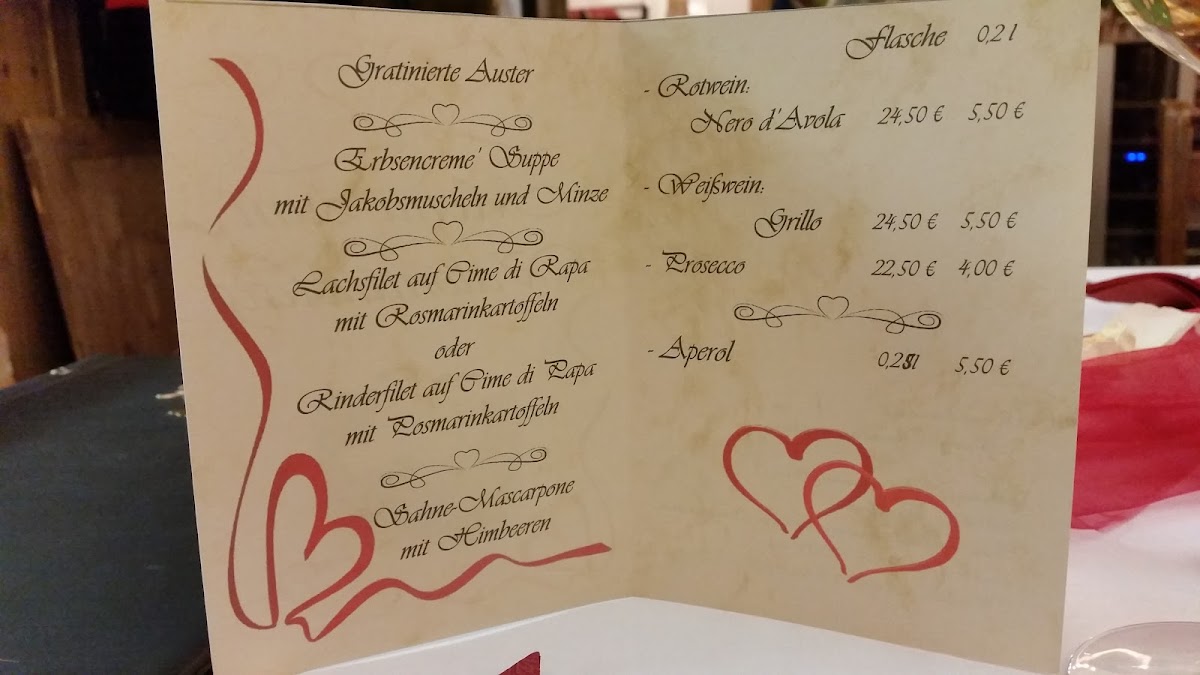 Gratinierte Auster
Erbsencreme' Suppe
mit Jakobsmuscheln und Minze
Lachsfilet auf Cime di Rapa
mit Rosmarinkartoffeln
oder
Rinderfilet auf Cime di Papa
mit Posmarinkartoffeln
Sahne-Mascarpone
mit Himbeeren
Flasche 0,2 l
- Rotwein:
Nero d'Avola 24,50 € 5,50 €
- Weißwein:
Grillo 24,50 € 5,50 €
- Prosecco 22,50 € 4,00 €
- Aperol 0,2l 5,50 €